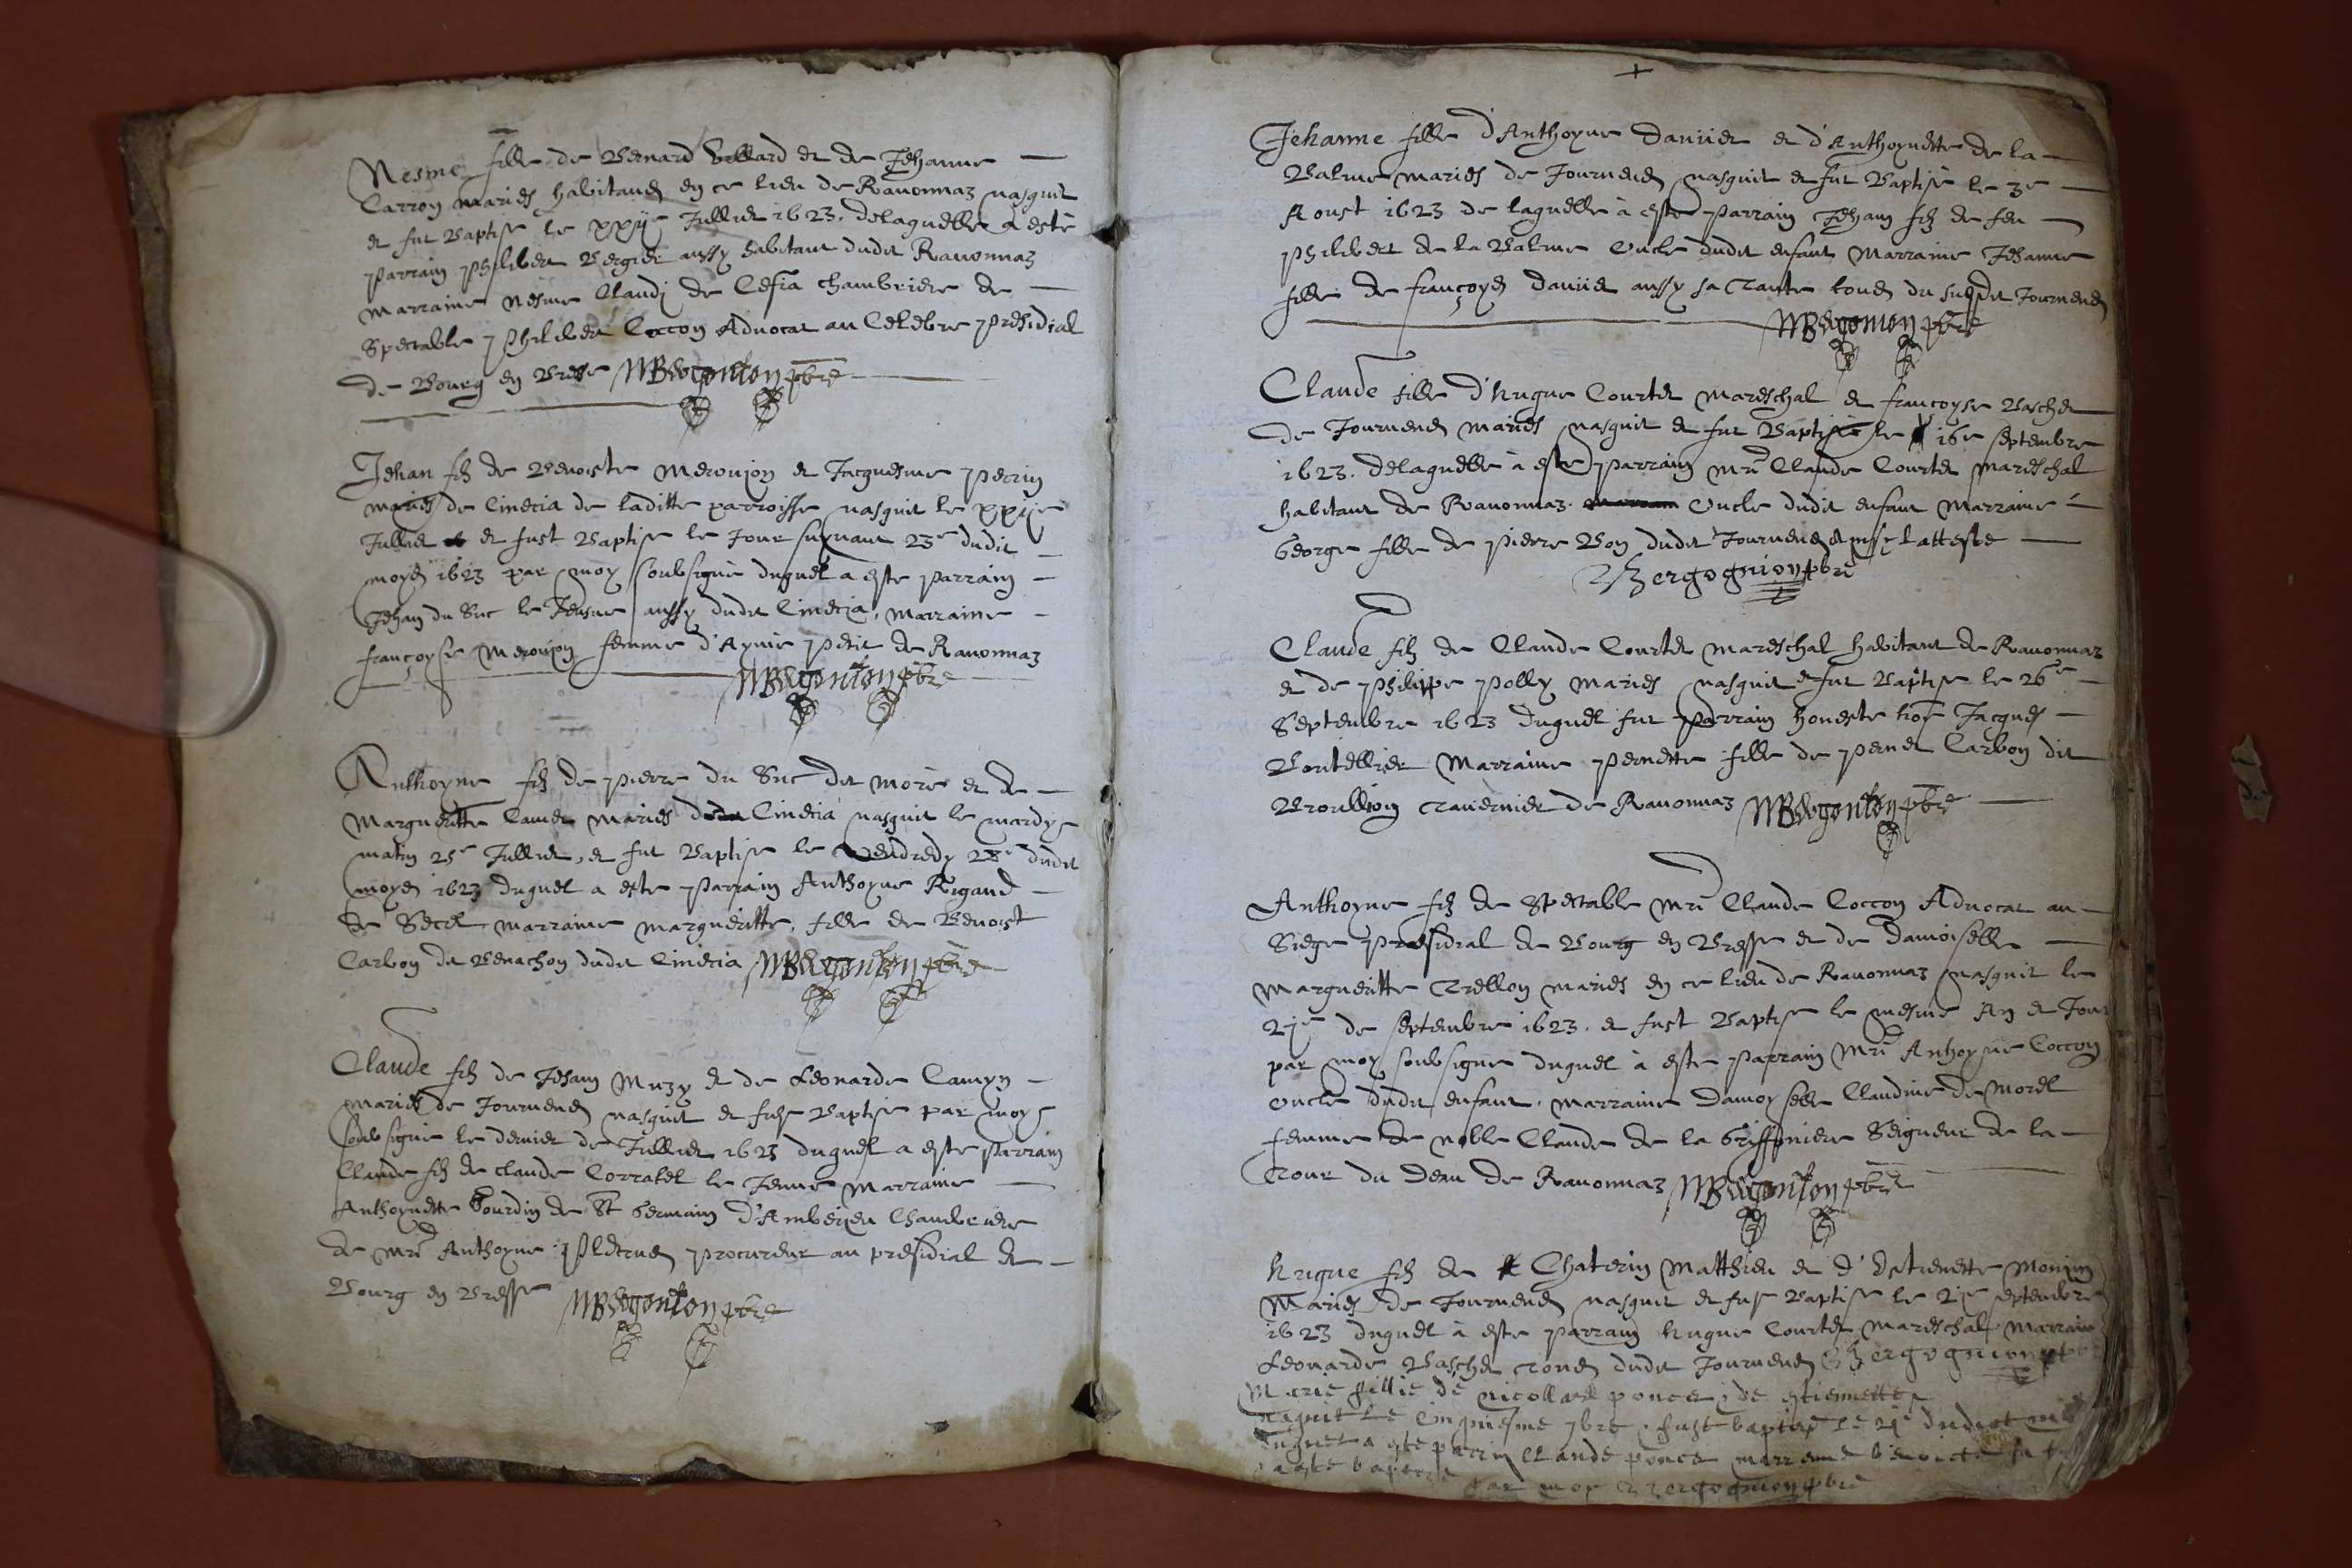 Nesme fille de Bernard Billard et de Jehanne
Carron mariés habitans en ce lieu de Rauonnaz nasquit
et fut baptisé le xxije Juillet 1623. delaquelle a esté
parrain philibert Bergier aussy habitant dudit Rauonnaz
marraine nesme Claudj de Cesia chambriere de
Spectable philibert Coccon Aduocat au Celebre presidial
de Bourg en Bresse MBergonion pbre
Jehan filz de Benoiste Meronjon et Jacquesme perrin
mariés de Cinecia de laditte parroisse nasquit le xxije
Juillet et fust baptisé le Jour suyuant 23e dudit
moys 1623 par moy soubsigné duquel a esté parrain
Jehan du Suc le Jeusne aussy dudit Cinecia, marraine
françoyse meronjon femme d'Aymé petit de Rauonnaz
MBergonion pbre
Anthoyne filz de pierre du Suc dit moré et de
Margueritte mariés dudit Cinecia nasquit le mardy
matin 25e Juillet, et fut baptisé le Vendredy 28e dudit
moys 1623 duquel a esté parrain Anthoyne Rigaud
de marraine margueritte, fille de Benoist
Carbon dit Benachon dudit Cinecia MBergonion pbre
Claude filz de Jehan Muzy et de Leonarde Camyn
mariés de Journens nasquit et fust baptisé par moy
soubsigné le dernier de Juillet 1623 duquel a esté parrain
Claude filz de claude Corratel le Jeune marraine
Anthoynette Gourdin de St Germain d'Amberieu Chambriere
de Mre Anthoyne procureur au presidial de
Bourg en Bresse MBergonion pbre
Jehanne fille d'Anthoyne Dauiet et d'Anthoynette de la
Balme mariés de Journens nasquit et fut baptisé le 3e
Aoust 1623 de laquelle à esté parrain Jehan filz de feu
philibert de la Balme oncle dudit enfant Marraine Jehanne
fille de françoys Dauiet aussy sa Tante tous du susdit Journens
MBergonion pbre
Claude fille d'hugue Courtet mareschal et françoyse Baschet
de Journens mariés nasquit et fut Baptisée le 16e septembre
1623. delaquelle à esté parrain Mre Claude Courtet mareschal
habitant de Rauonnaz. oncle dudit enfant Marraine
George fille de pierre Bon dudit Journens et ainsy l'atteste
Bergognion pbre
Claude filz de Claude Courtet mareschal habitant de Rauonnaz
et de philippe polly mariés nasquit et fut baptisé le 26e
Septembre 1623 duquel fut parrain honeste hoe Jacques
Boutellier Marraine pernette fille de pernet Carbon dit
Brouillion Tauernier de Rauonnaz MBergonion pbre
Anthoyne filz de Spectable Mre Claude Coccon Aduocat au
Siege presidial de Bourg en Bresse et de damoiselle
Margueritte Trellon mariés en ce lieu de Rauonnaz nasquit le
27e de septembre 1623. et fust baptisé le mesme An et Jour
par moy soubsigné duquel à esté parrain Mre Anhoyne Coccon
oncle dudit enfant. marraine Damoyselle Claudine de Morel
femme de noble Claude de la Griffoniere Seigneur de la
Tour du Deau de Rauonnaz MBergonion pbre
hugue filz de Chaterin Matthieu et d'Estienette Monjon
Mariés de Journens nasquit et fust baptisé le 27e septembre
1623 duquel à esté parrain hugue Courtet mareschal marraine
Leonarde Baschet Tous dudit Journens Bergognion pbre
Marie fillie de nicollas ponce, de estiennette
naquit le cinquiesme 7bre. fust baptisé le dudict mois
duquel a esté parrin Claude ponce marrenne benoicte
a esté baptizé par moy Bergognion pbre